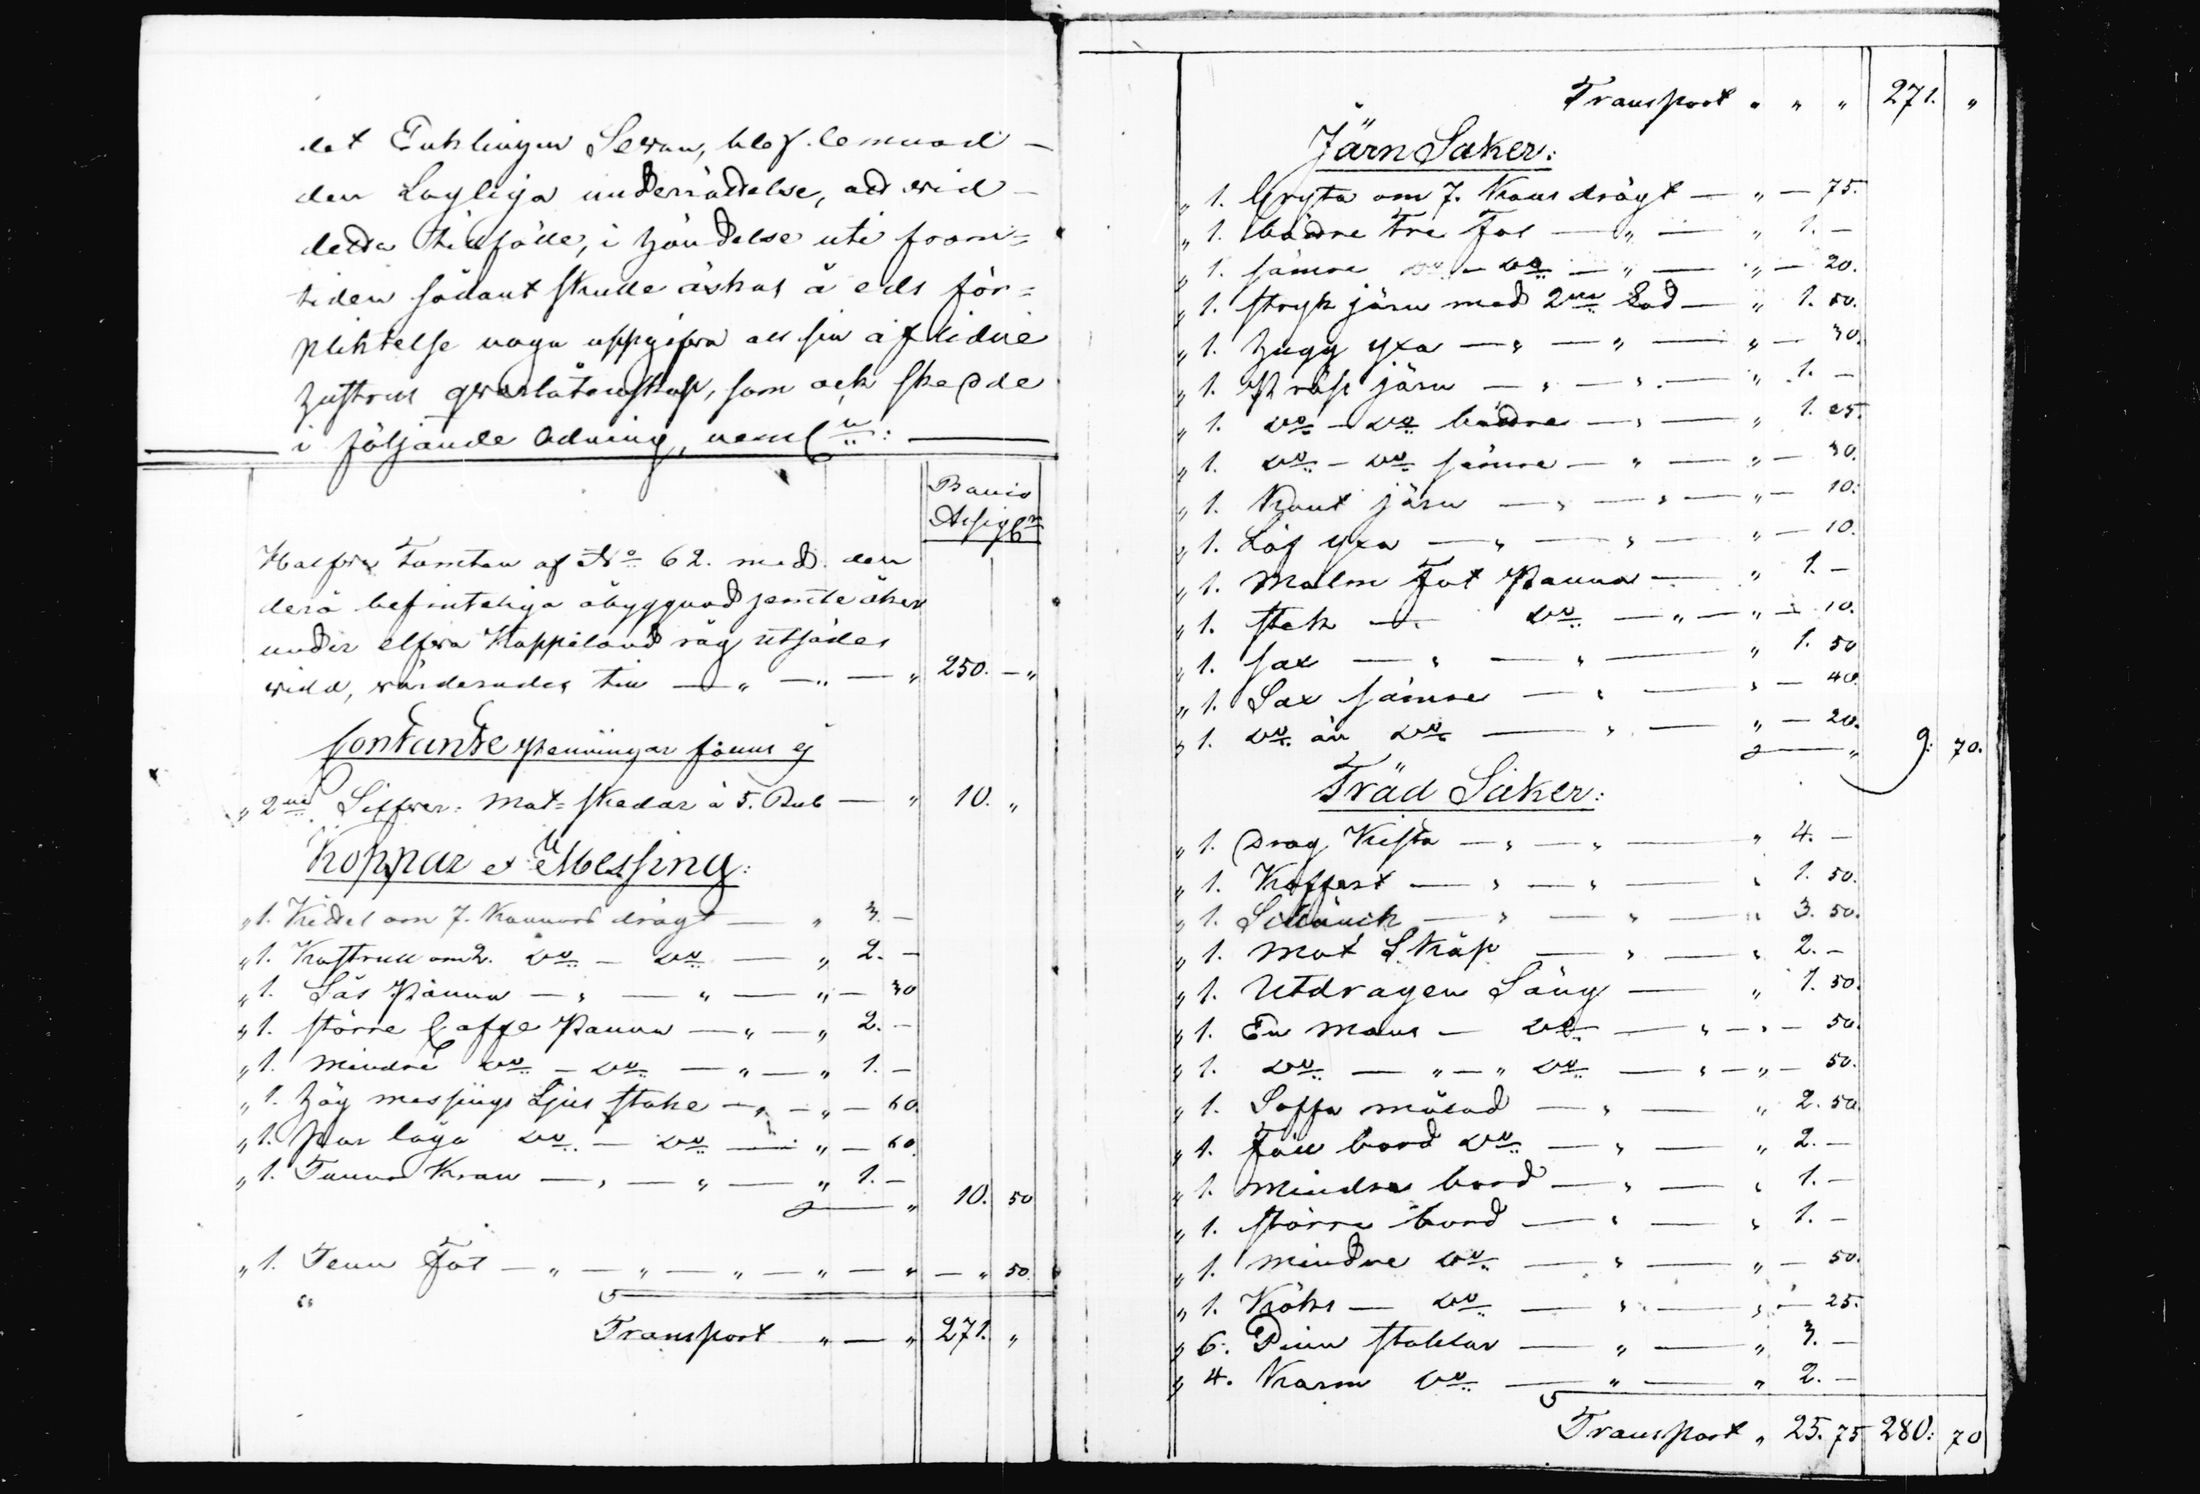 det Enklingen Sevon, blef lemnad
den Lagliga underrättelse, att wid
detta tillfälle, i händelse uti fram=
tiden sådant skulle äskas å eds för=
pliktelse noga uppgifva all sin aflidne
hustrus qvarlåtenskap, som ock skedde
i följande Odning, neml:n:
Banco
Assig:n
Halfva Tomten af No 62. med den
derå befinteliga åbyggnad jemte åker
under elfva Kappeland råg utsädes
widd, värderades till — " — " — " 250. — "
Contante penningar fanns ej
" 2ne Silfver: Mat=skedar à 5. Rub — " 10. "
Koppar et Messing:
" 1. Kittel om 7. Kannors drägt — " 3. —
" 1. Kastrull om 2. do — do — " 2. —
" 1. Sås Panna — " — " — " — 30
" 1. större Caffe Panna — " — " 2. —
" 1. mindre do — do — " — " 1. —
" 1. hög messings Ljus stake — " — " — 60.
" 1. par låga do — do — " — 60.
" 1. Tunna Kran — " — " — " 1. —
" 10. 50
" 1. Tenn Fat — " — " — " — " — " — " 50.
Transport " — " 271. "
Transport " " " 271. "
Järn Saker:
" 1. Gryta om 7. Kans drägt — " — 75.
" 1. bättre Tre Fot — " — " 1. —
" 1. sämre do — do — " — " — 20.
" 1. stryk järn med 2ne Lod — " 1. 50.
" 1. hugg yxa — " — " — " — 30.
" 1. Präss järn — " — " — " 1. —
" 1. do — do bättre — " — " 1. 25.
" 1. do — do sämre — " — " — 30.
" 1. Krout järn — " — " — " — 10.
" 1. Löf yxa — " — " — " — 10.
" 1. Malm Fot Panna — " 1. —
" 1. stek — " do — " — " — 10.
" 1. sax — " — " — " 1. 50
" 1. Sax sämre — " — " — 40.
" 1. do än do — " — " — 20.
" 9: 70.
Träd Saker:
" 1. Drag Kista — " — " — " 4. —
" 1. Koffert — " — " — " 1. 50.
" 1. — " — " — " 3. 50.
" 1. Mat Skåp — " — " 2. —
" 1. Utdragen Säng — " 1. 50.
" 1. En Mans — do — " — " — 50.
" 1. do — " — " do — " — " — 50.
" 1. Soffa målad — " — " 2. 50
" 1. Fäll bord do — " — " 2. —
" 1. Mindre bord — " — " 1. —
" 1. större bord — " — " 1. —
" 1. mindre do — " — " — 50.
" 1. Köks — do — " — " — 25.
" 6. Pinn stolar — " — " 3. —
" 4. Karm do — " — " 2. —
Transport " 25. 75 280: 70